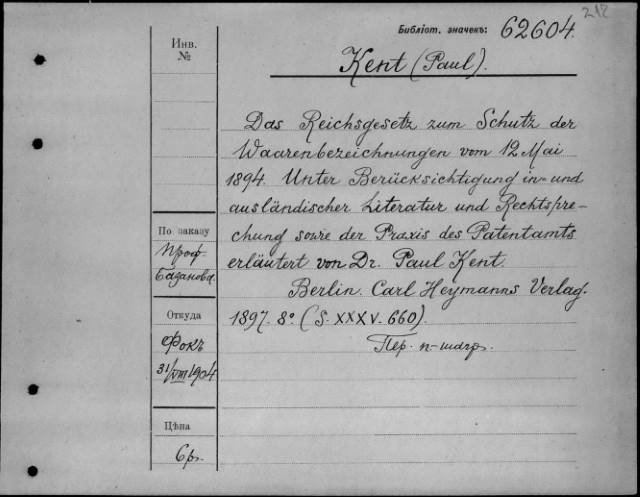 212
Библіот. значекъ: 62604.
Инв. №
Kent (Paul).
Das Reichsgesetz zum Schutz der
Waarenbezeichnungen vom 12 Mai
1894. Unter Berücksichtigung in- und
ausländischer Literatur und Rechtspre-
chung sowie der Praxis des Patentamts
erläutert von Dr. Paul Kent.
Berlin. Carl Heymanns Verlag.
1897. 8° (S. XXXV-660).
Пер. п-шагр.
По заказу
Проф.
Базанова.
Откуда
Фокъ
31/VIII 1904
Цѣна
6 р.